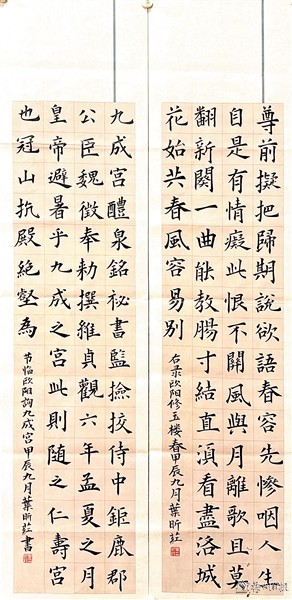 尊前擬把歸期說欲語春容先慘咽人生
自是有情癡此恨不關風與月離歌且莫
翻新闋一曲能教腸寸結直湏看盡洛城
花始共春風容易别
右录欧阳修玉楼春甲辰九月葉昕莊
九成宮醴泉銘祕書監撿挍侍中鉅鹿郡
公臣魏徵奉勅撰維貞觀六年孟夏之月
皇帝避暑乎九成之宮此則随之仁壽宮
也冠山抗殿絶壑為
节临欧阳詢九成宫甲辰九月葉昕莊書